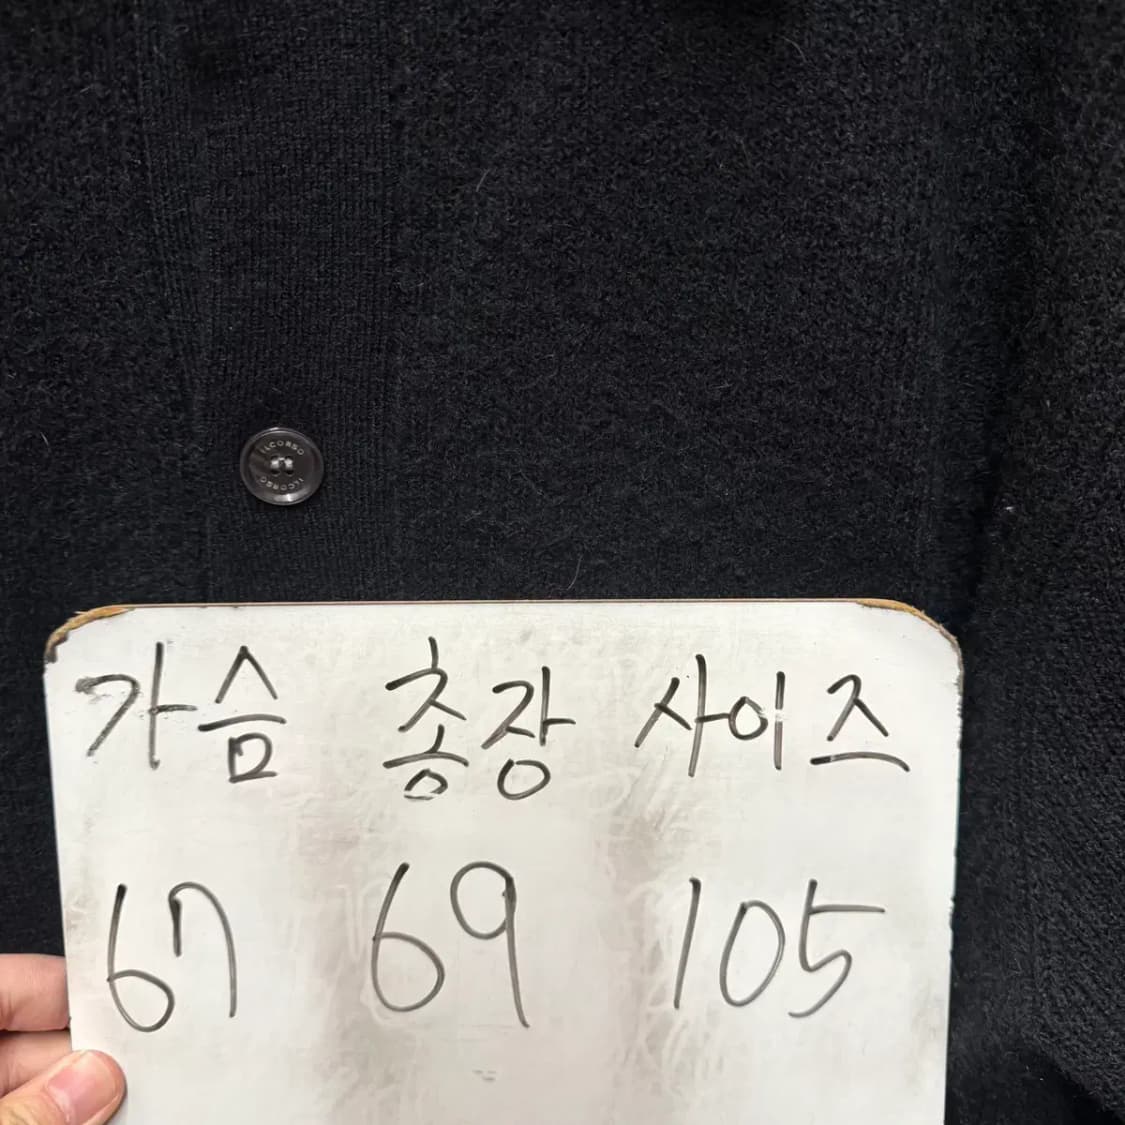 ILCORSO
ILCORSO
가슴 총장 사이즈
67 69 105